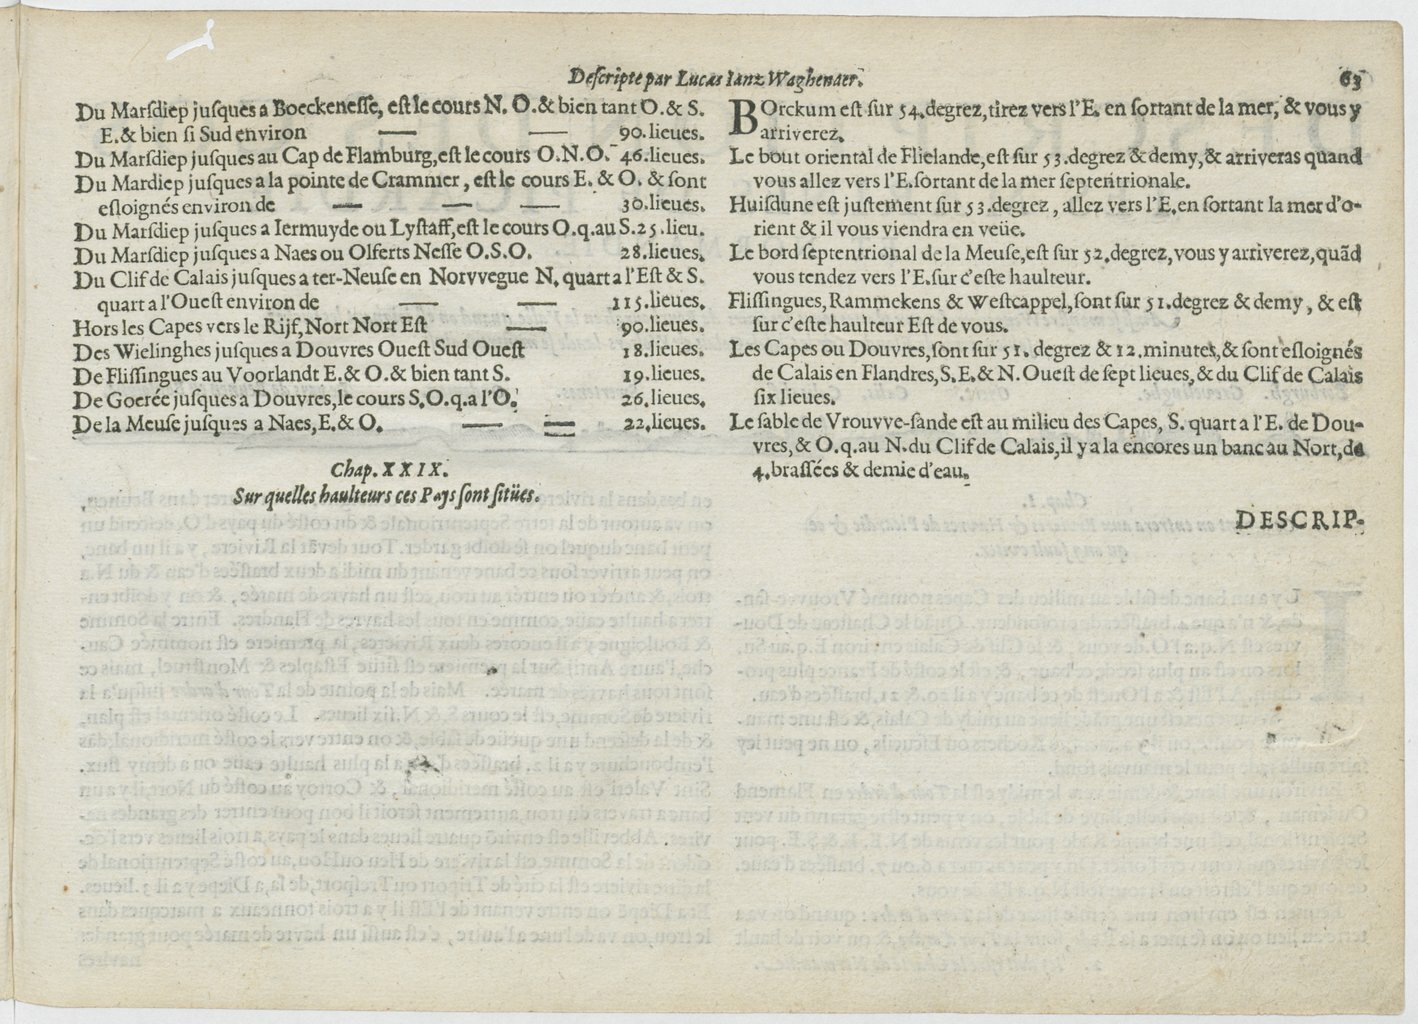 Descripte par Lucas Ianz Waghenaer. 63
Du Marsdiep jusques a Boeckenesse, est le cours N. O. & bien tant O. & S.
E. & bien si Sud environ — — 90. lieues.
Du Marsdiep jusques au Cap de Flamburg, est le cours O. N. O. 46. lieues.
Du Mardiep jusques a la pointe de Crammer, est le cours E. & O. & sont
esloignés environ de — — — 30. lieues.
Du Marsdiep jusques a Iermuyde ou Lystaff, est le cours O. q. au S. 25. lieu.
Du Marsdiep jusques a Naes ou Olferts Nesse O. S O. 28. lieues.
Du Clif de Calais jusques a ter-Neuse en Norvvegue N. quart a l'Est & S.
quart a l'Ouest environ de — — 115. lieues.
Hors les Capes vers le Rijf, Nort Nort Est — 90. lieues.
Des Wielinghes jusques a Douvres Ouest Sud Ouest 18. lieues.
De Flissingues au Voorlandt E. & O. & bien tant S. 19. lieues.
De Goerée jusques a Douvres, le cours S. O. q. a l'O. 26. lieues.
De la Meuse jusques a Naes, E. & O. — — 22. lieues.
Chap. XXIX.
Sur quelles haulteurs ces Pays sont sitües.
BOrckum est sur 54. degrez, tirez vers l'E. en sortant de la mer, & vous y
arriverez.
Le bout oriental de Flielande, est sur 53. degrez & demy, & arriveras quand
vous allez vers l'E. sortant de la mer septentrionale.
Huisdune est justement sur 53. degrez, allez vers l'E. en sortant la mer d'o-
rient & il vous viendra en veüe.
Le bord septentrional de la Meuse, est sur 52. degrez, vous y arriverez, quãd
vous tendez vers l'E. sur c'este haulteur.
Flissingues, Rammekens & Westcappel, sont sur 51. degrez & demy, & est
sur c'este haulteur Est de vous.
Les Capes ou Douvres, sont sur 51. degrez & 12. minutes, & sont esloignés
de Calais en Flandres, S. E. & N. Ouest de sept lieues, & du Clif de Calais
six lieues.
Le sable de Vrouvve-sande est au milieu des Capes, S. quart a l'E. de Dou-
vres, & O. q. au N. du Clif de Calais, il y a la encores un banc au Nort, de
4. brassées & demie d'eau.
DESCRIP-